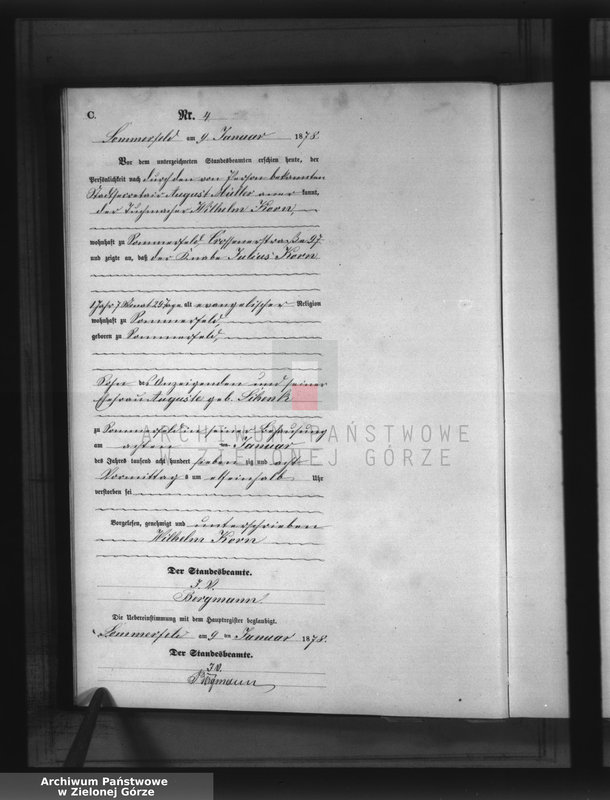 C. Nr. 4
Sommerfeld am 9 Januar 1878
Vor dem unterzeichneten Standesbeamten erschien heute, der
Persönlichkeit nach durch den von Person bekannten
Stadtsecretair August Müller aner kannt,
der Tuchmacher Wilhelm Korn,
wohnhaft zu Sommerfeld Crossenerstraße 97
und zeigte an, daß der Knabe Julius Korn
1 Jahr 7 Monat 26 Tage alt evangelischer Religion
wohnhaft zu Sommerfeld,
geboren zu Sommerfeld,
Sohn des Anzeigenden und seiner
Ehefrau Auguste geb. Schenk
zu Sommerfeld in seiner Behausung
am achten Januar
des Jahres tausend acht hundert sieben zig und acht
Vormittag s um Uhr
verstorben sei
Vorgelesen, genehmigt und unterschrieben
Wilhelm Korn
Der Standesbeamte.
I. V.
Bergmann.
Die Uebereinstimmung mit dem Hauptregister beglaubigt.
Sommerfeld am 9 ten Januar 1878.
Der Standesbeamte.
I. V.
Bergmann
ARCHIWUM PAŃSTWOWE
W ZIELONEJ GÓRZE
Archiwum Państwowe
w Zielonej Górze